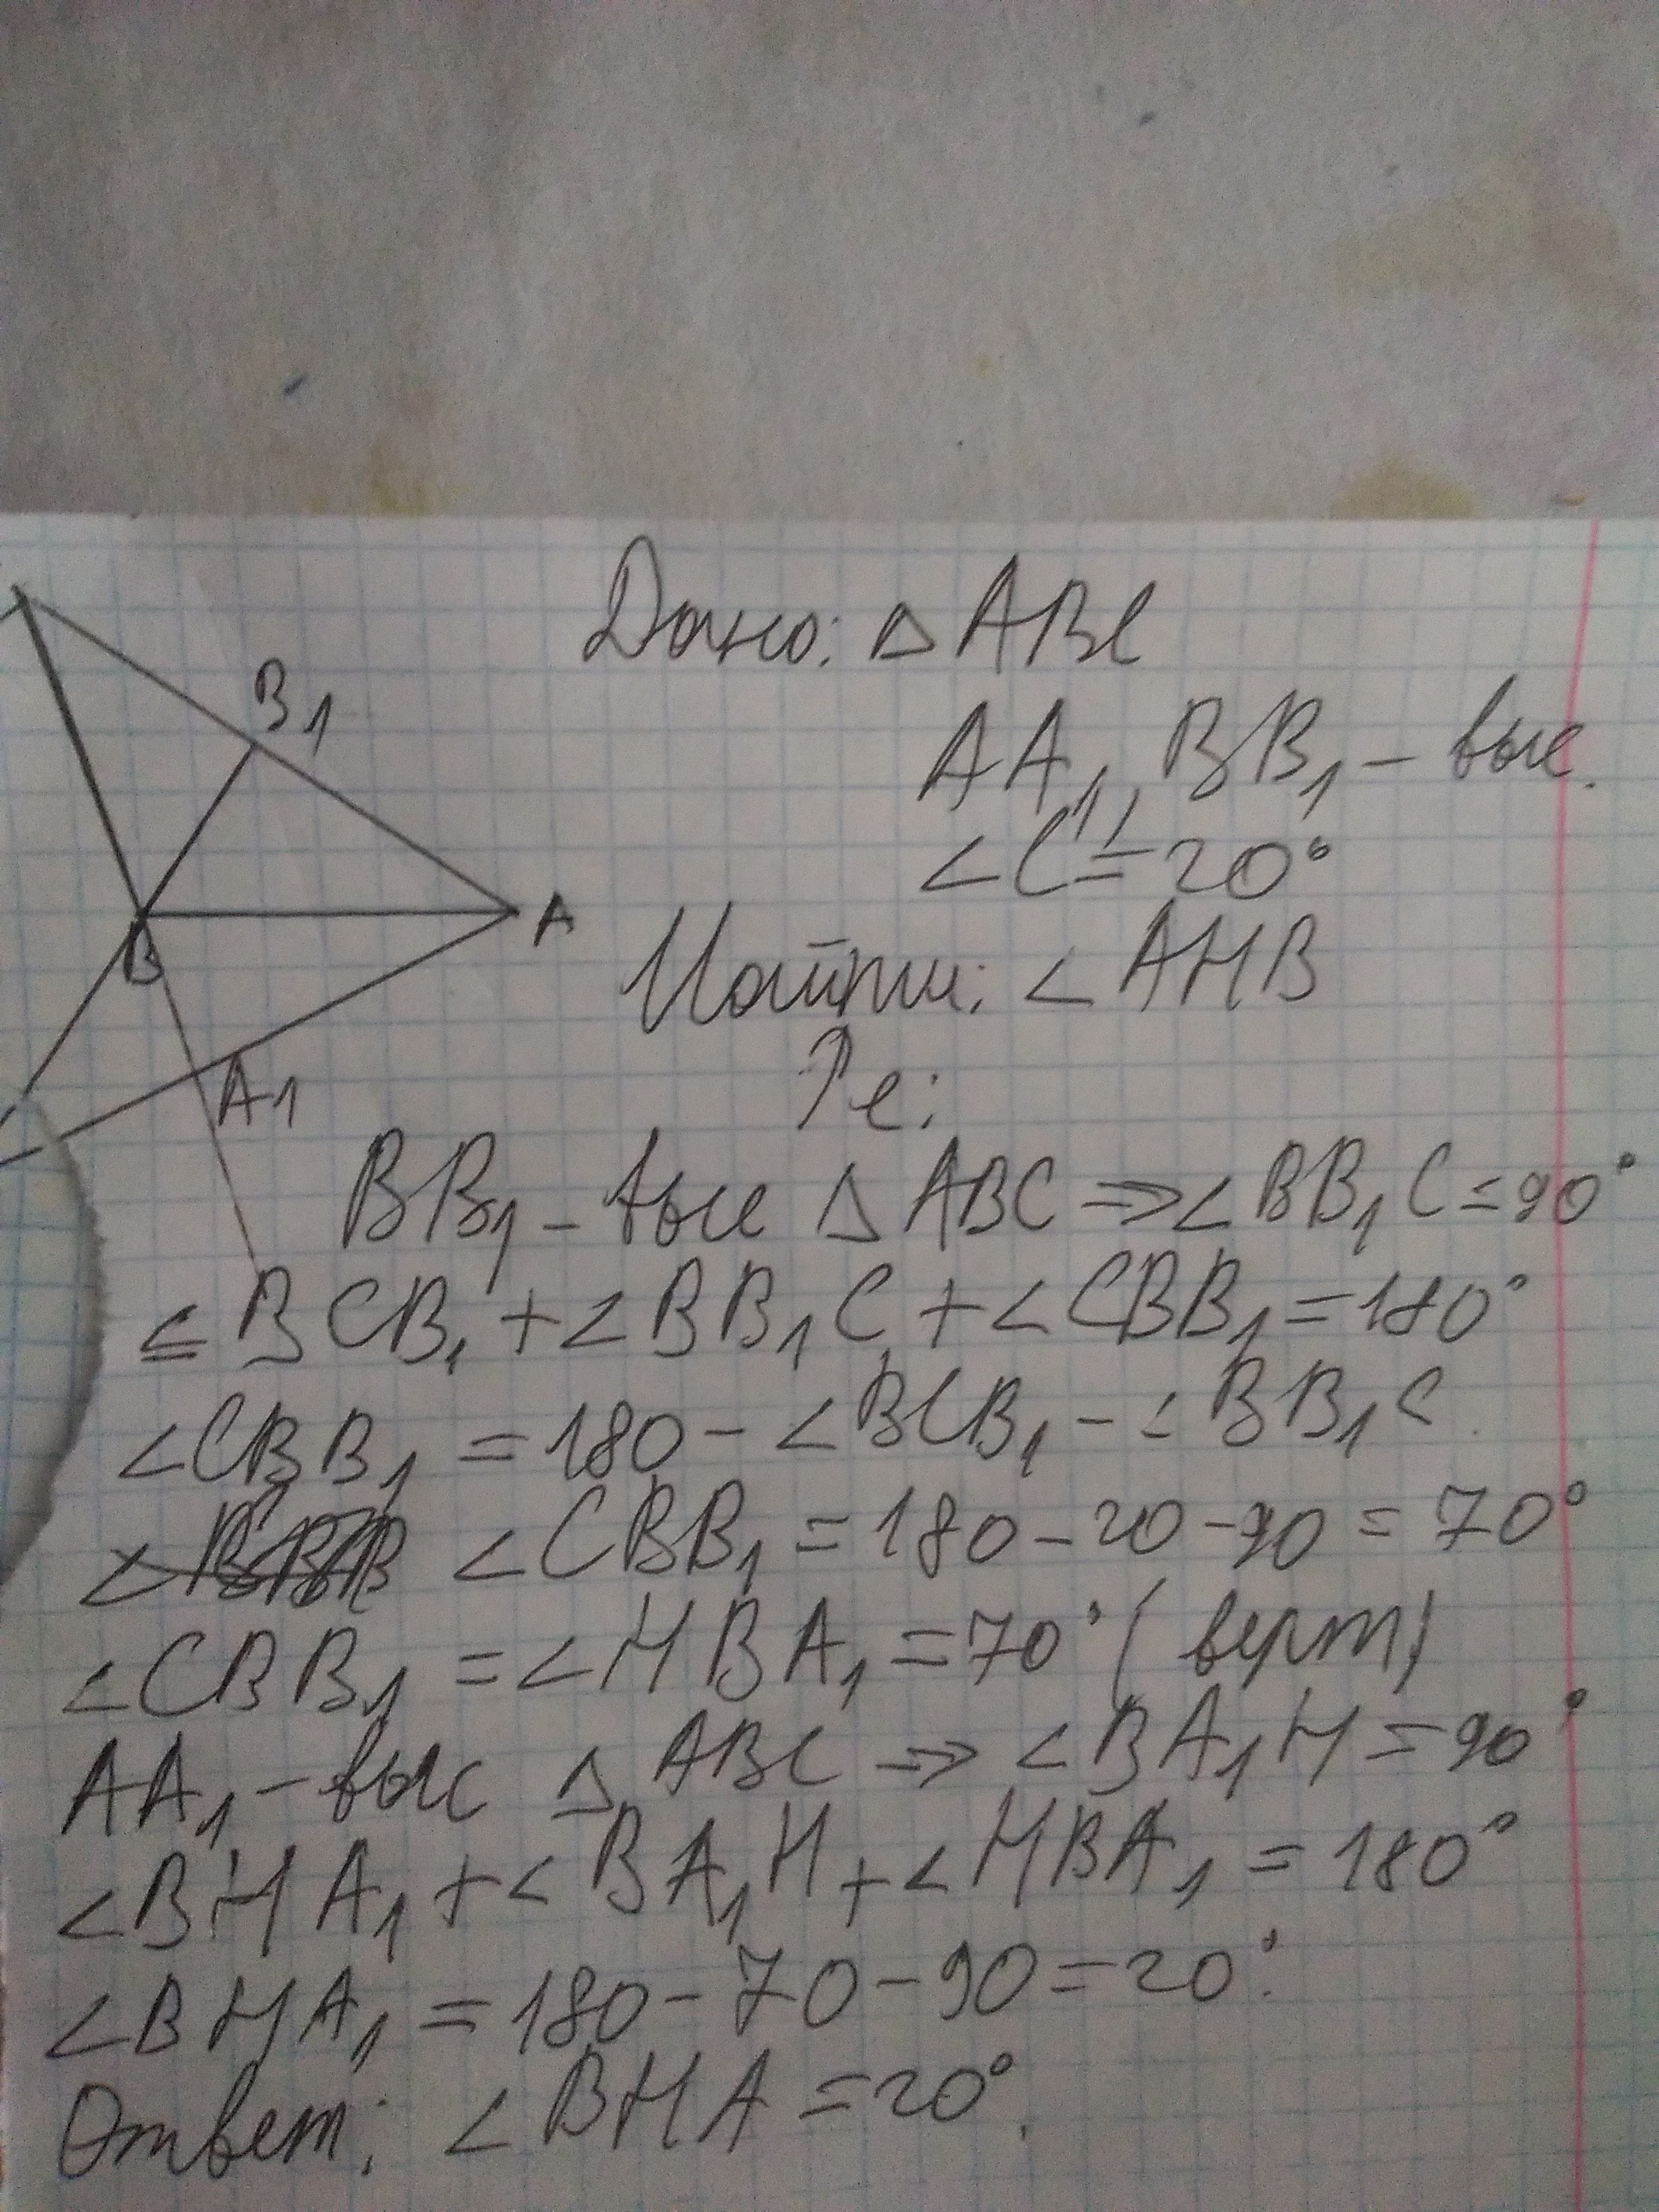 Дано: △ ABC
AA₁, BB₁ – выс.
∠C = 20°
Найти: ∠AHB
Ре:
B₁
A
B
A₁
BB₁ – выс △ ABC ⇒ ∠BB₁C = 90°
∠BCB₁ + ∠BB₁C + ∠CBB₁ = 180°
∠CBB₁ = 180 – ∠BCB₁ – ∠BB₁C
∠CBB₁ = 180 – 20 – 90 = 70°
∠CBB₁ = ∠HBA₁ = 70° (верт)
AA₁ – выс △ ABC ⇒ ∠BA₁H = 90°
∠BHA₁ + ∠BA₁H + ∠HBA₁ = 180°
∠BHA₁ = 180 – 70 – 90 = 20°.
Ответ: ∠BHA = 20°.